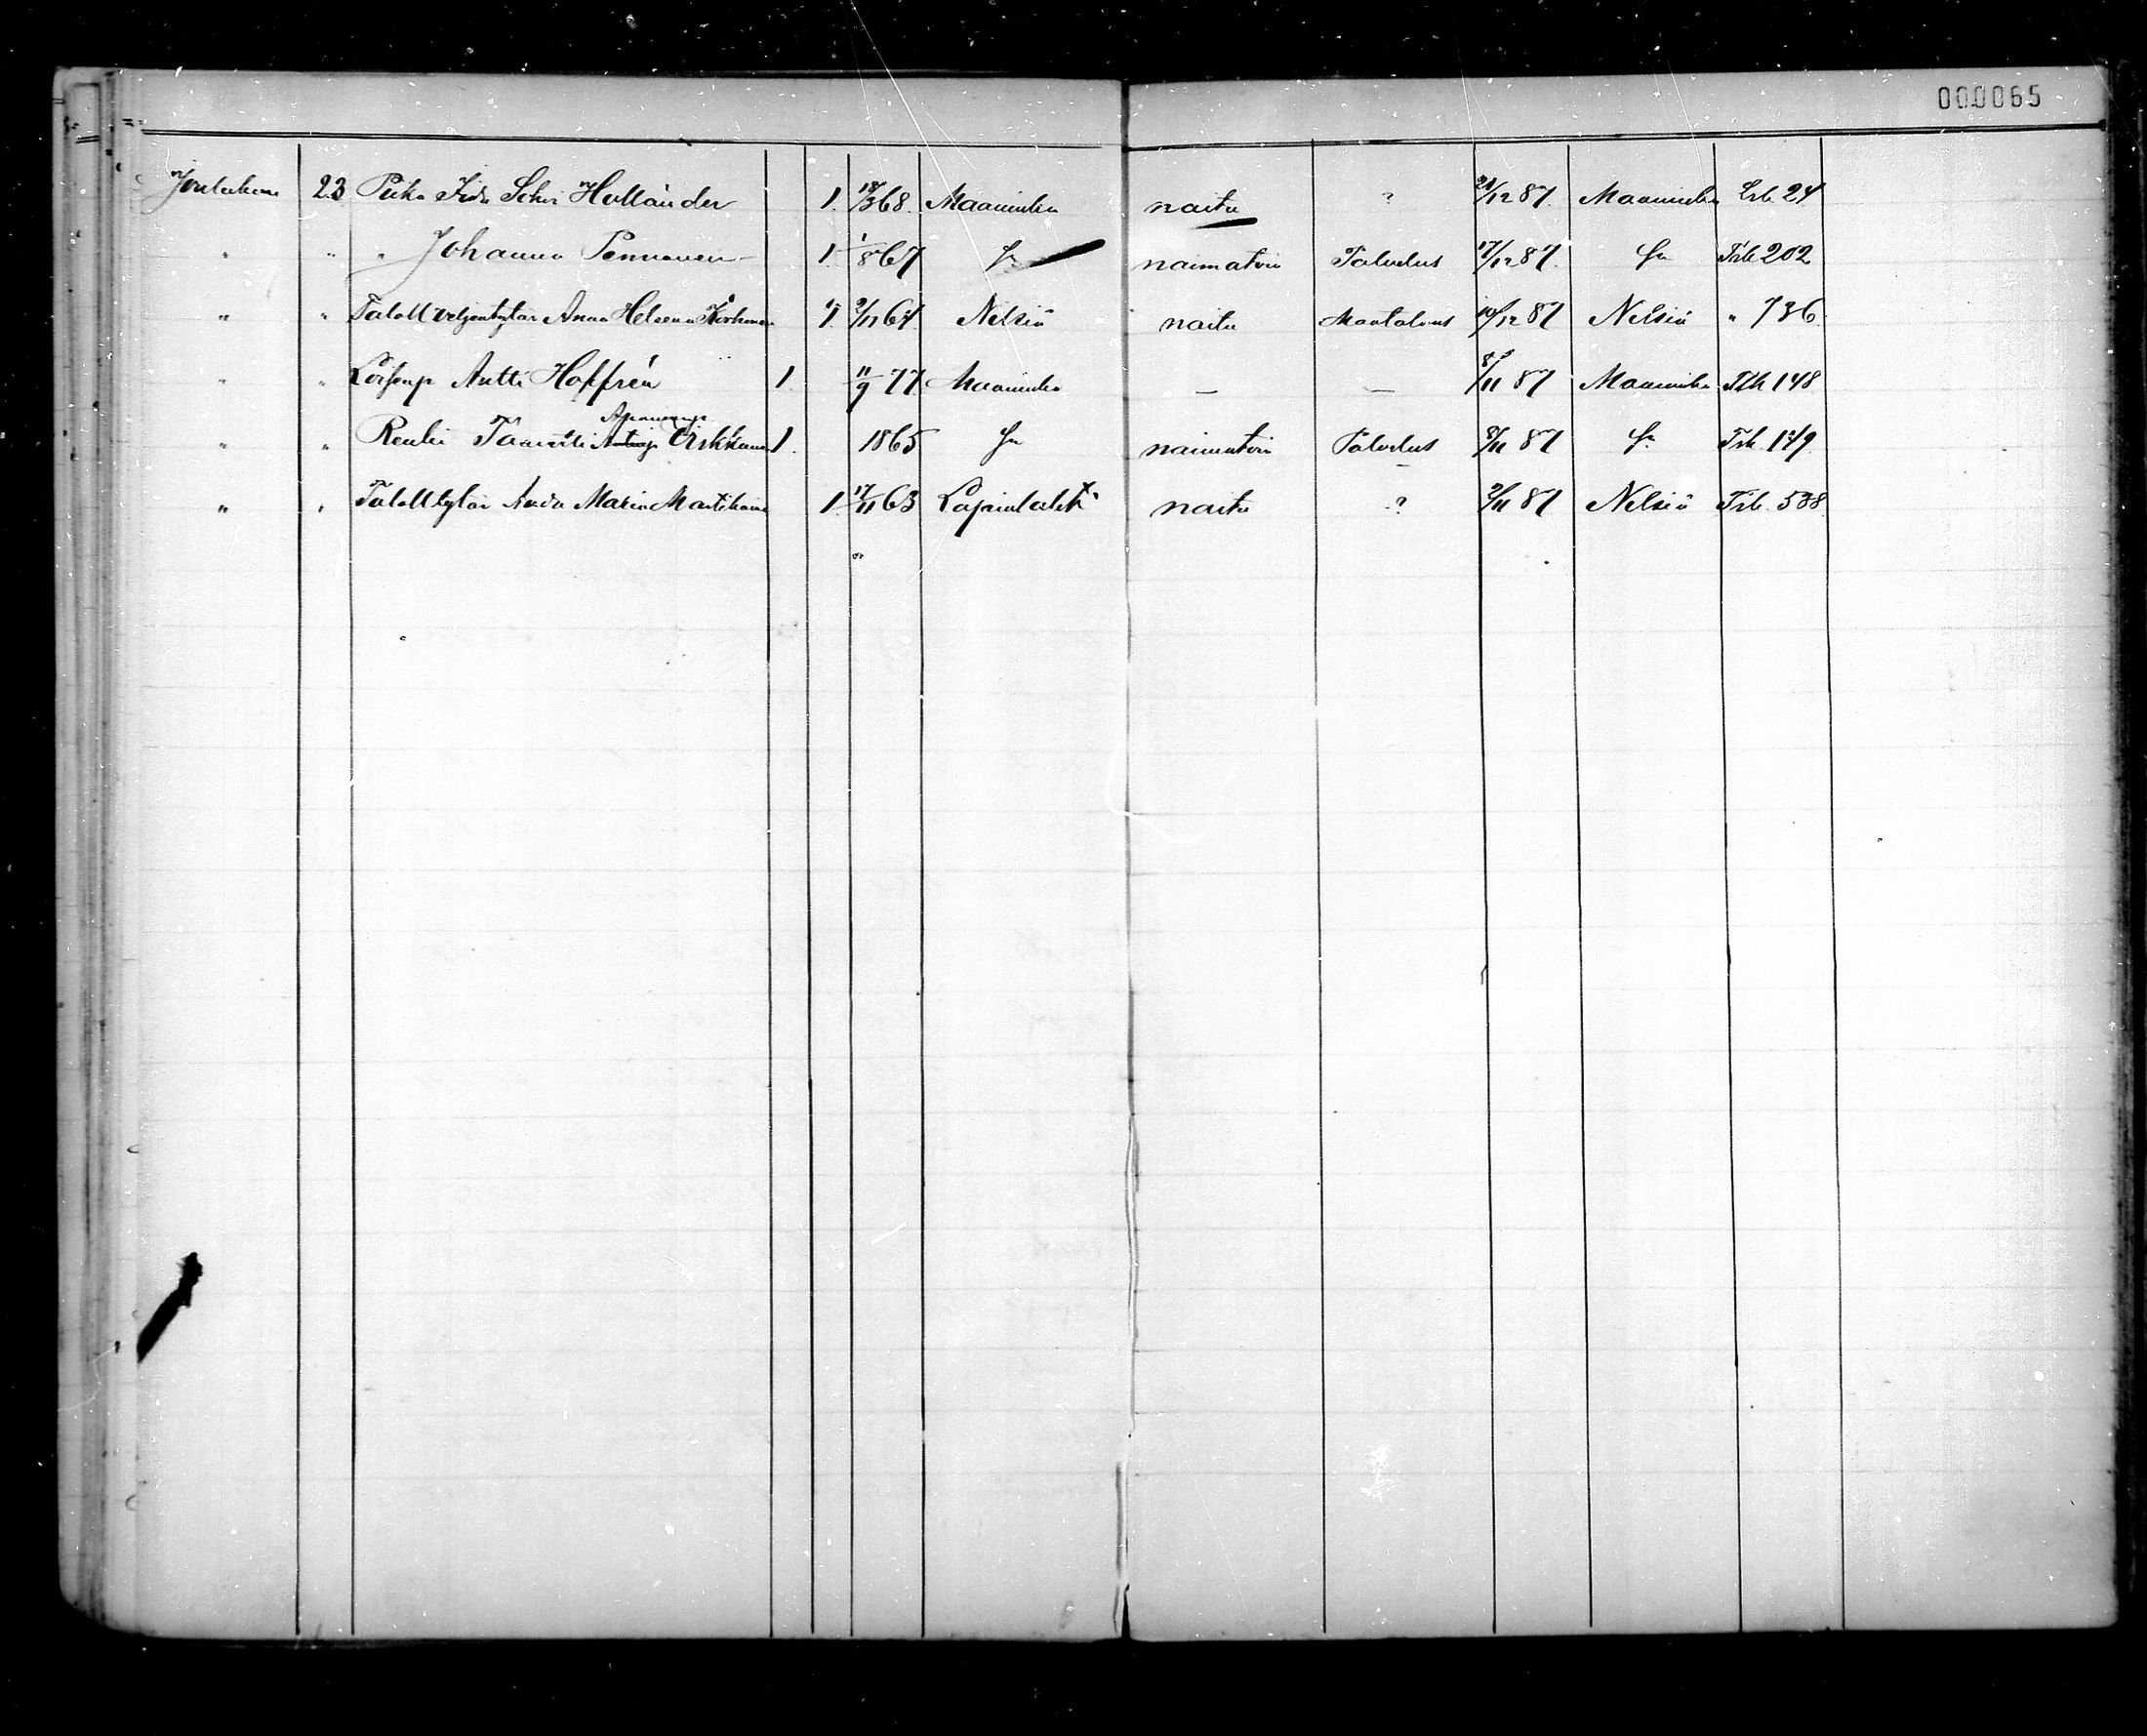 000065
Joulukuu 23 Piika Iida Sohvi Holländer 1. 18/3 68. Maaninka naitu ? 21/12 87. Maaninka Lrk. 24
" " " Johanna Pennanen 1. 1/8 67 Sr naimatoin Palvelus 17/12 87. Sr Trk 202
" " Taloll veljentytär Anna Helena Korhonen 1. 9/11 64 Nilsiä naitu Maatalous 10/12 87 Nilsiä " 736.
" " Loisenp Antti Hoffrén 1 11/9 77. Maaninka — — 8/11 87 Maaninka Trk 148
" " Renki Taavetti Antinp Apanenp 1. 1865 Sr naimatoin Palvelus 8/11 87 Sr Trk. 149
" " Talolltytär Anna Maria Martikainen 1. 17/11 63 Lapinlahti naitu ? 2/11 87 Nilsiä Trk. 538.